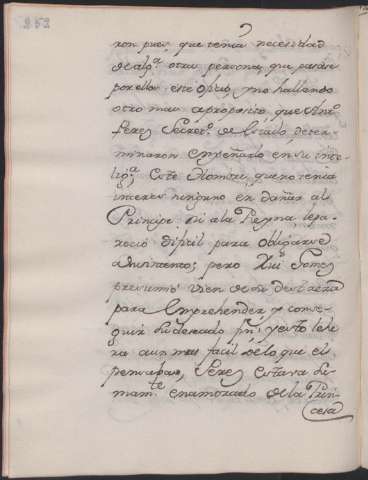 252
ron pues, que tenia necesidad
de alg.ª otra persona, que parase
por ella este oficio y no hallando
otro mas aproposito, que Ant.º
Perez Secret.º de Estado, deter
minaron
Este Hombre, que no tenia
interes ninguno en dañar al
Principe ni a la Reyna le pa-
recio dificil para obligarse
pero Rui Gomez
presumió bien de su destreza
para emprehender, y conse-
guir su deseado fin, y esto le se
ra aun mas facil de lo que el
pensaba, Perez estava su
mam.te enamorado de la Prin
cesa